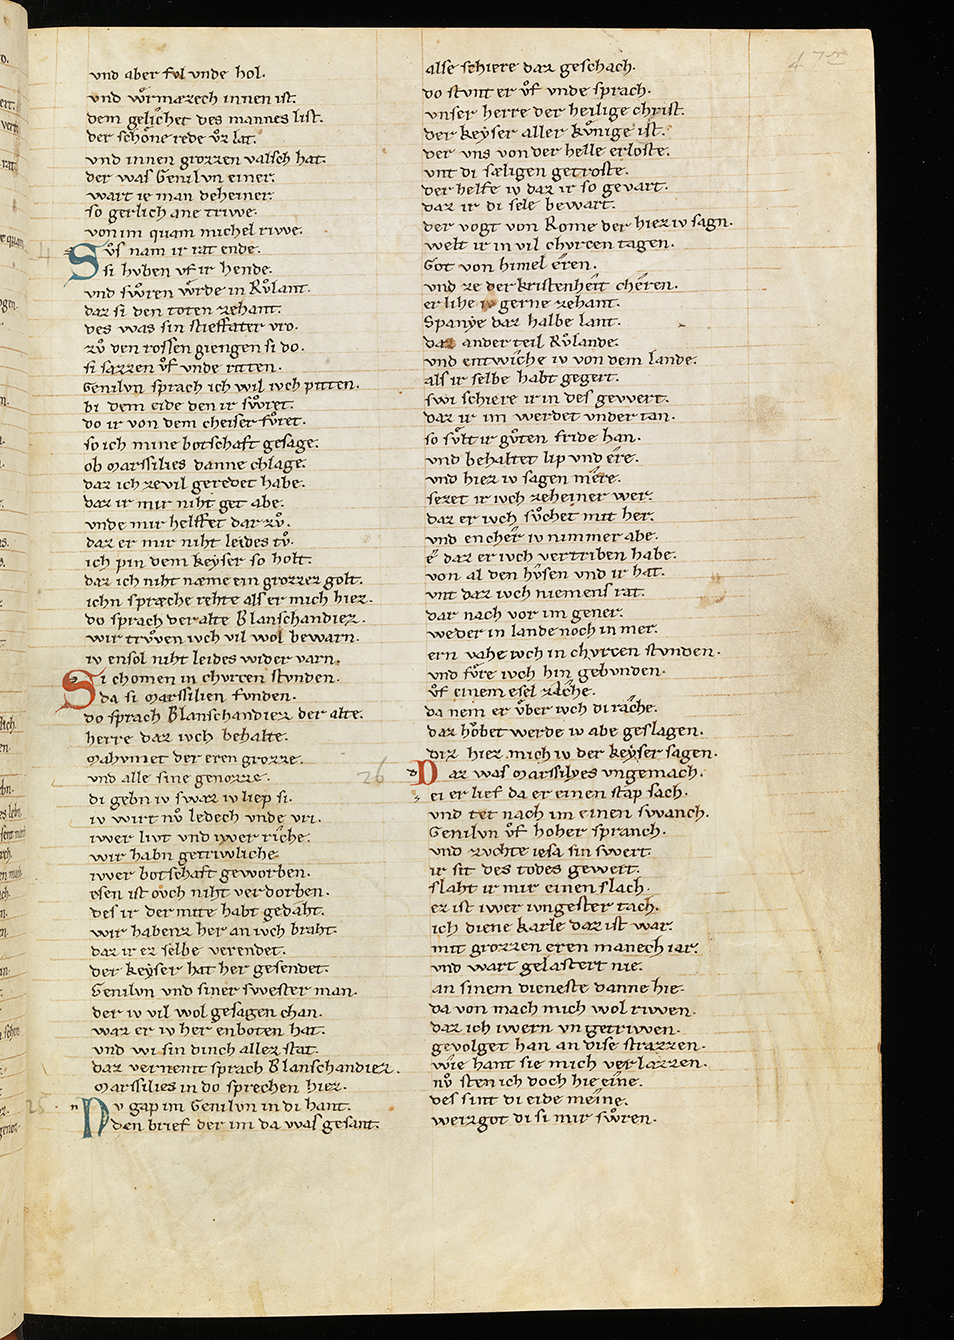 vnd aber fvl vnde hol.
vnd wͦrmæzech innen ist.
dem gelichet des mannes list.
der schoͤne rede vͦz lat.
vnd innen grozzen valsch hat.
der was Genilvn einer.
wart ie man deheiner.
so gerlich ane triwe.
von im quam michel rivve.
Sͮs nam ir rat ende.
si hvben vf ir hende.
vnd swͦren wͦrde in Rvͦlant.
daz si den toten zehant.
des was sin stieffater vro.
zvͦ den rossen giengen si do.
si sazzen vͦf vnde ritten.
Genilvn sprach ich wil ivch pitten.
bi dem eide den ir swͦret.
do ir von dem cheiser fvͦret.
so ich mine botschaft gesage.
ob marssilies danne chlage.
daz ich ze vil geredet habe.
daz ir mir niht get abe.
vnde mir helffet dar zvͦ.
daz er mir niht leides tvͦ.
ich pin dem keyser so holt.
daz ich niht næme ein grozzez golt.
ichn spræche rehte als er mich hiez.
do sprach der alte Blanschandiez.
wir trvͦven ivch vil wol bewarn.
iv ensol niht leides wider varn.
Si chomen in chvrcen stvnden.
da si marssilien fvnden.
do sprach Blanschandiez der alte.
herre daz ivch behalte.
mahvmet der eren grozze.
vnd alle sine genozze.
di gebn iv swaz iv liep si.
iv wirt nvͦ ledech vnde vri.
iwer livt vnd iwer riche.
wir habn getriwliche
iwer botschaft geworben.
esen ist ovch niht verdorben.
des ir der mite habt gedaht.
wir habenz her an ivch braht.
daz ir ez selbe verendet.
der keyser hat her gesendet.
Genilvn vnd siner swester man.
der iv vil wol gesagen chan.
waz er iv her enboten hat.
vnd wi sin dinch allez stat.
daz vernemt sprach Blanschandiez.
marssilies in do sprechen hiez.
Nv gap im Genilvn in di hant.
den brief der im da was gesant.
alse schiere daz geschach.
do stvnt er vͦf vnde sprach.
vnser herre der heilige christ.
der keyser aller kvͦnige ist.
der vns von der helle erloste.
vnt di sæligen getroste.
der helfe iv daz ir so gevart.
daz ir di sele bewart.
der vogt von Rome der hiez iv sagn.
welt ir in vil chvrcen tagen.
Got von himel eren.
vnd ze der kristenheit cheren.
er lihe iv gerne zehant.
Spanye daz halbe lant.
daz ander teil Rvͦlande.
vnd entwiche iv von dem lande.
als ir selbe habt gegert.
swi schiere ir in des gewert.
daz ir im werdet vnder tan.
so svͦlt ir gvͦten fride han.
vnd behaltet lip vnd ere.
vnd hiez iv sagen mere.
sezet ir ivch zeheiner wer.
daz er ivch svͦchet mit her.
vnd encher iv nimmer abe.
e daz er ivch vertriben habe.
von al den hvsen vnd ir hat.
vnt daz ivch niemens rat.
dar nach vor im gener.
weder in lande noch in mer.
ern vahe ivch in chvrcen stvnden.
vnd fvͦre ivch hin gebvnden.
vͦf einem esel zæche.
da nem er vͦber ivch di rache.
daz hoͮbet werde iv abe geslagen.
diz hiez mich iv der keyser sagen.
Daz was marssilyes vngemach.
ei er lief da er einen stap sach.
vnd tet nach im einen swanch.
Genilvn vͦf hoher spranch.
vnd zvchte iesa sin swert.
ir sit des todes gewert.
slaht ir mir einen slach.
ez ist iwer ivngester tach.
ich diene karle daz ist war.
mit grozzen eren manech iar.
vnd wart gelastert nie.
an sinem dieneste danne hie.
da von mach mich wol rivven.
daz ich iwern vngetriwen.
gevolget han an dise strazzen.
wie hant sie mich verlazzen.
nvͦ sten ich doch hie eine.
des sint di eide meine.
weizgot di si mir swͦren.